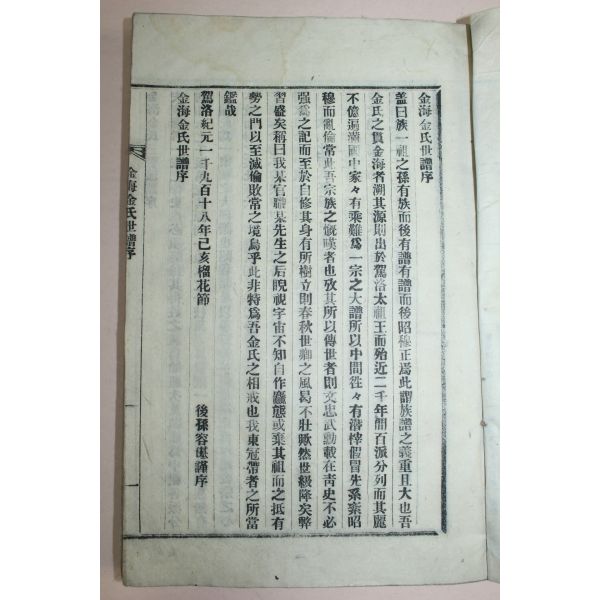 金海金氏世譜序
盖曰族一祖之孫有族而後有譜有譜而後昭穆正焉此謂族譜之義重且大也吾
金氏之貫金海者溯其源則出於駕洛太祖王而殆近二千年間百派分列而其麗
不億遍滿國中家々有乘難爲一宗之大譜所以中間徃々有潛悖假冒先系紊昭
穆而亂倫常此吾宗族之慨嘆者也攷其所以傳世者則文忠武勳載在靑史不必
强爲之記而至於自修其身有所樹立則春秋世卿之風曷不壯歟然世級降矣弊
習盛矣稱曰我某官職某先生之后睨視宇宙不知自作醜態或棄其祖而之抵有
勢之門以至滅倫敗常之境烏乎此非特爲吾金氏之相戒也我東冠帶者之所當
鑑哉
駕洛紀元一千九百十八年己亥榴花節
後孫容謹序
金海金氏世譜序
金海金氏世譜序
一